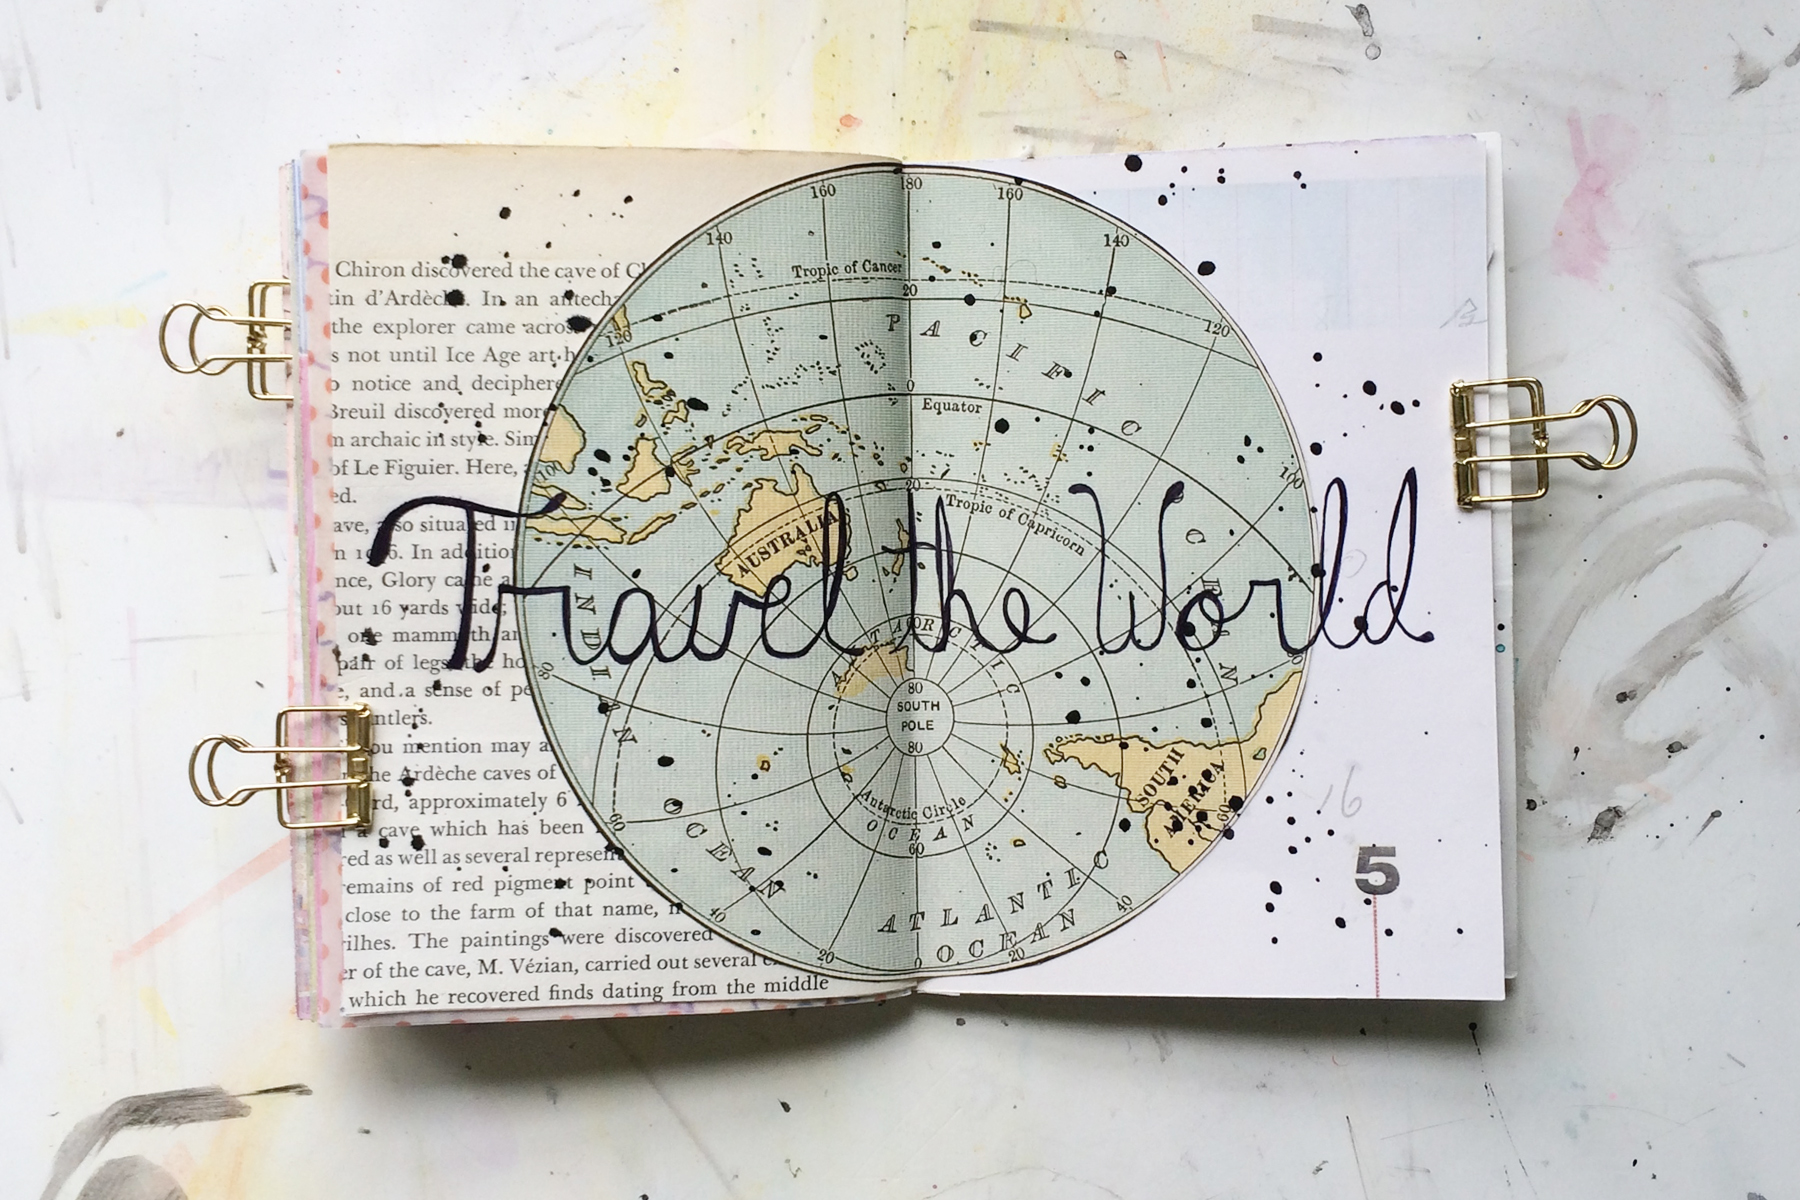 Chiron discovered the cave of
d'Ardèche. In an
the explorer came across
not until Ice Age art
notice and
Breuil discovered more
archaic in style.
of Le Figuier. Here,
also situated
In addition
Glory came a
16 yards wide;
one mammoth
pair of legs, the
and a sense of
antlers.
you mention may
the Ardèche caves of
approximately 6
a cave which has been
as well as several
remains of red pigment point
close to the farm of that name,
The paintings were discovered
of the cave, M. Vézian, carried out several
which he recovered finds dating from the middle
Travel the World
160 180 160
140 140
120 120
100 100
80 80
60 60
40 40
20 0 20
Tropic of Cancer
20
PACIFIC
0
Equator
20
Tropic of Capricorn
OCEAN
AUSTRALIA
INDIAN
OCEAN
ANTARCTIC
80
SOUTH
POLE
80
Antarctic Circle
OCEAN
60
SOUTH
AMERICA
ATLANTIC
OCEAN
16
5